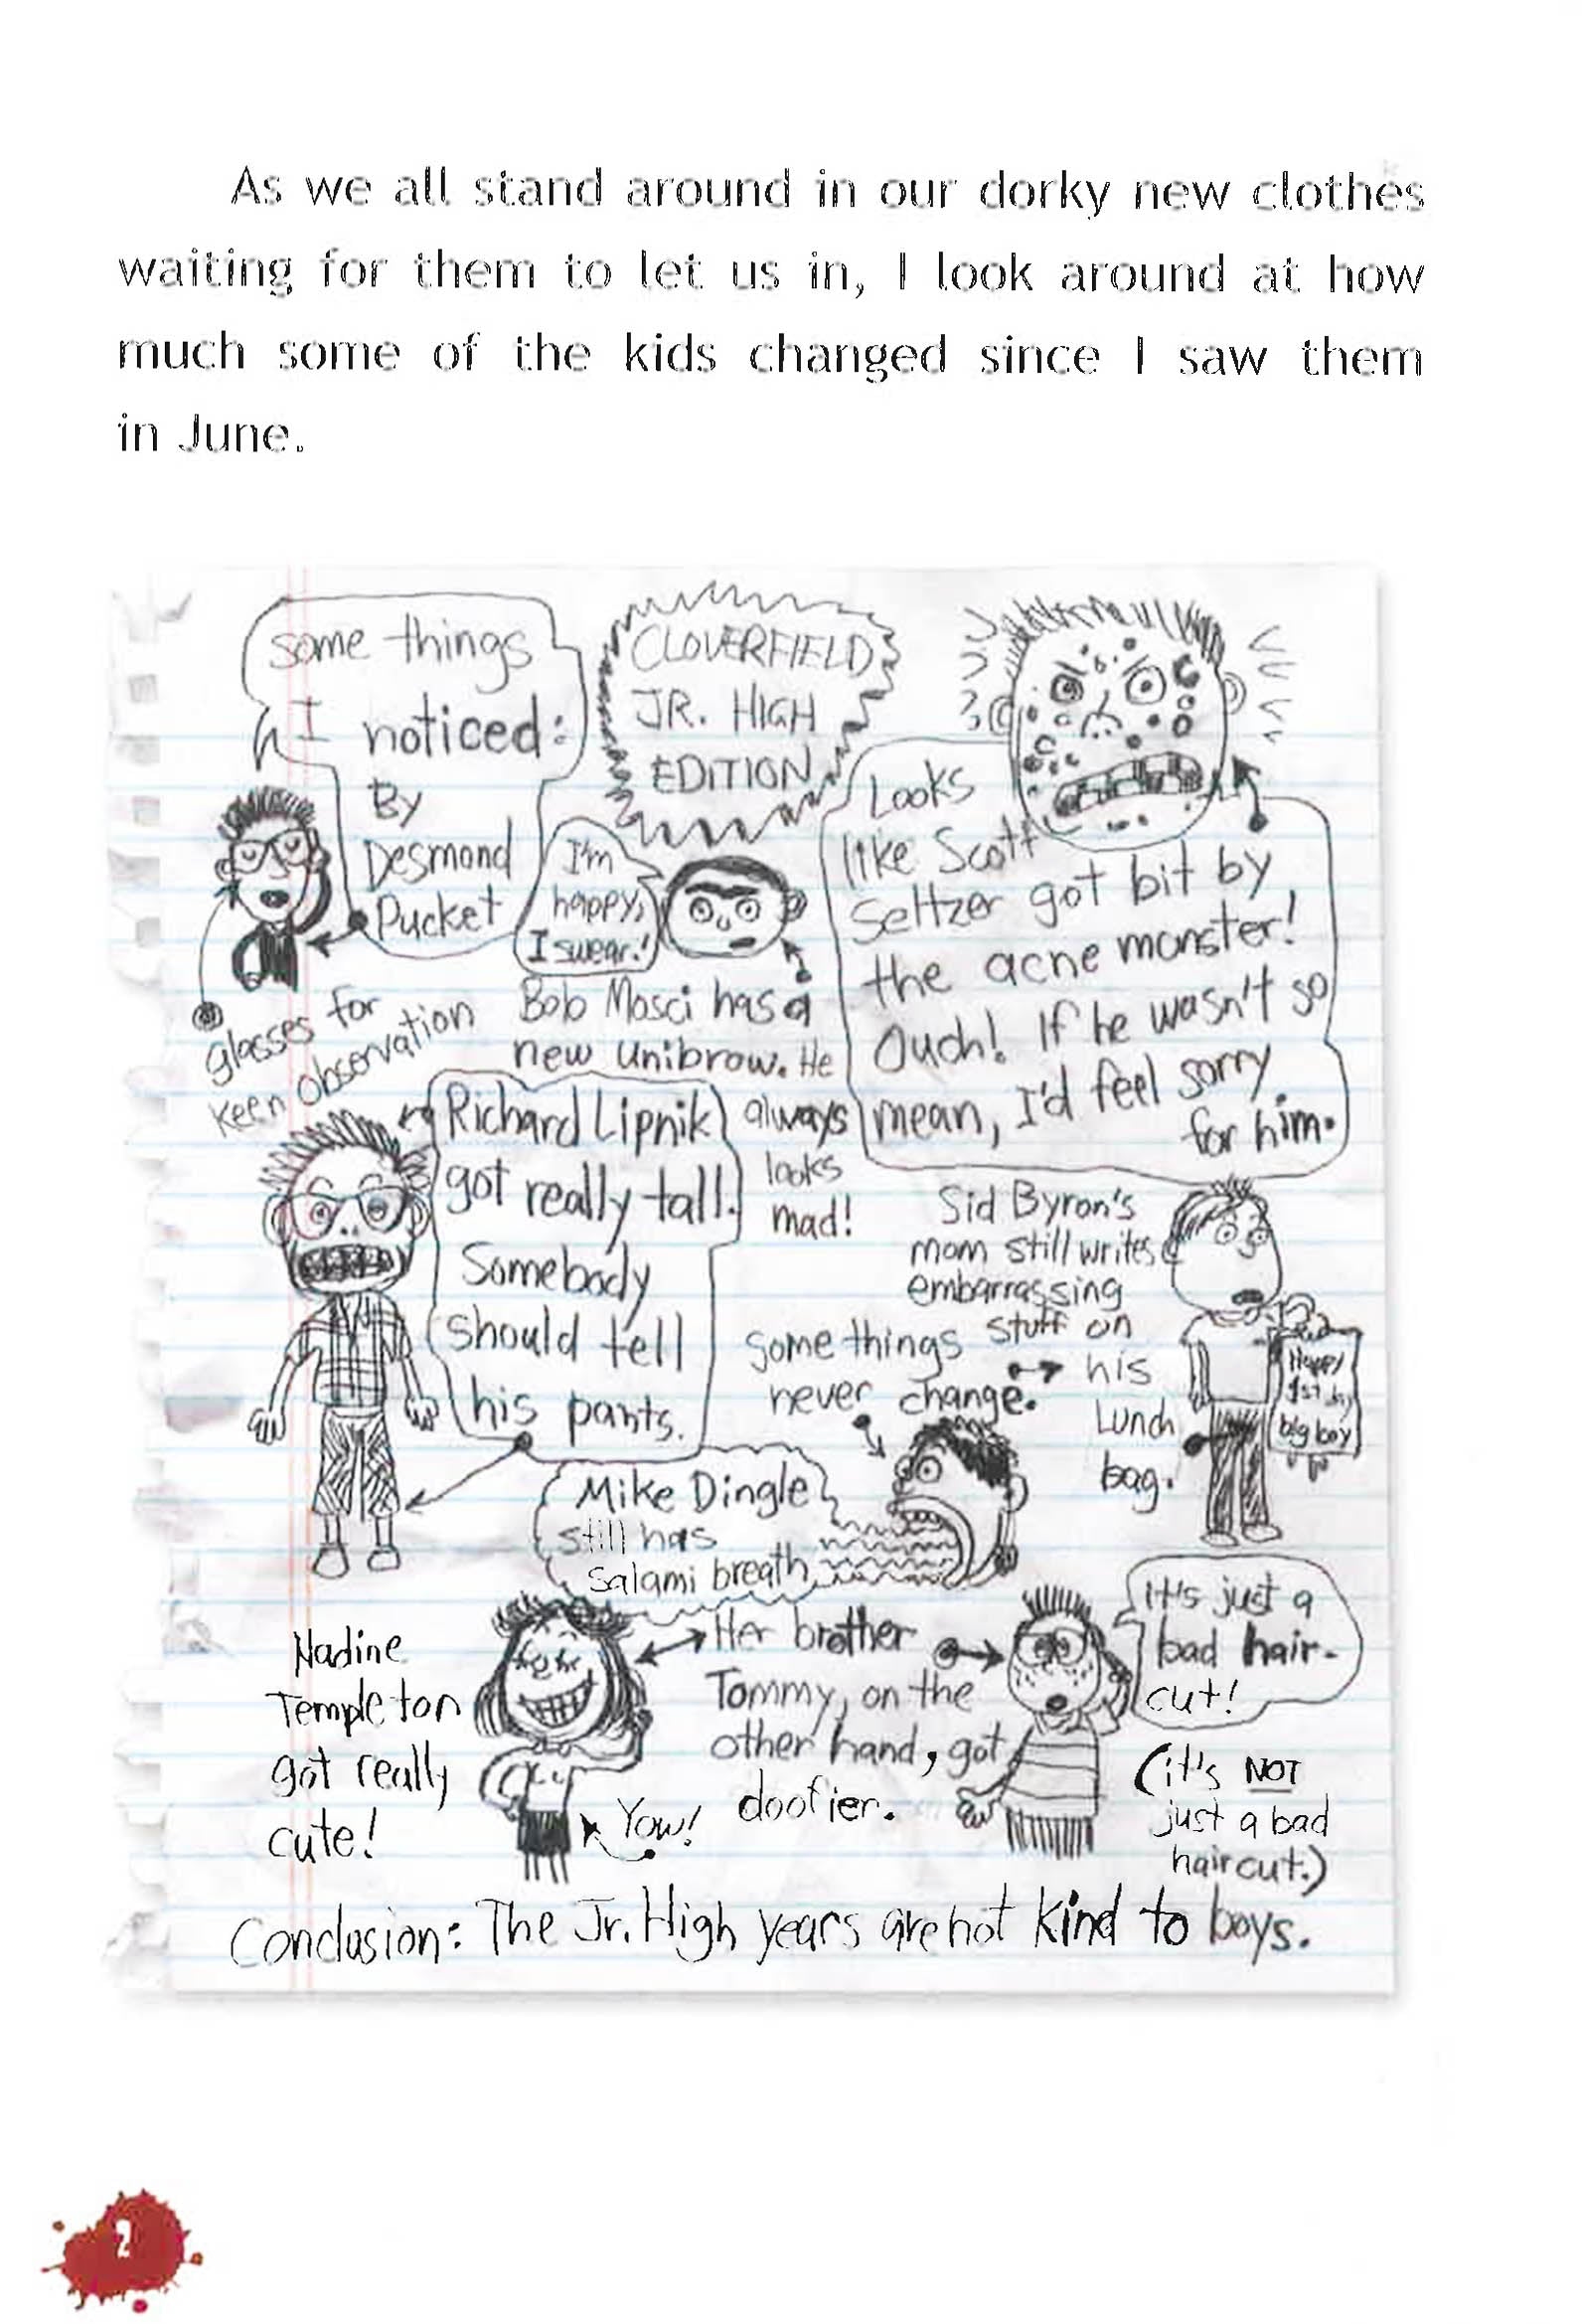 As we all stand around in our dorky new clothes
waiting for them to let us in, I look around at how
much some of the kids changed since I saw them
in June.
some things
I noticed:
By
Desmond
Pucket
CLOVERFIELD
JR. HIGH
EDITION
glasses for
keen observation
I'm
happy,
I swear!
Bob Mosci has a
new unibrow. He
always
looks
mad!
Looks
like Scott
Seltzer got bit by
the acne monster!
Ouch! If he wasn't so
mean, I'd feel sorry
for him.
Richard Lipnik
got really tall.
Somebody
should tell
his pants.
Sid Byron's
mom still writes
embarrassing
stuff on
his
Lunch
bag.
Happy
1st day
big boy
some things
never change.
Mike Dingle
still has
Salami breath
Nadine
Templeton
got really
cute!
Yow!
Her brother
Tommy, on the
other hand, got
doofier.
it's just a
bad hair-
cut!
(it's NOT
just a bad
haircut.)
Conclusion: The Jr. High years are not kind to boys.
2